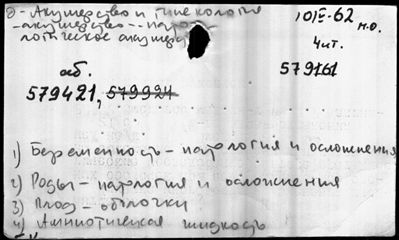 д - Акушерство и гинекология
10/II-62
н.о.
- акушерство - - пато-
логическое акушер
Чит.
аб.
579161
579421, 579921
1) Беременность - патология и осложнения
2) Роды - патология и осложнения
3) Плод - оболочки
4) Амниотическая жидкость